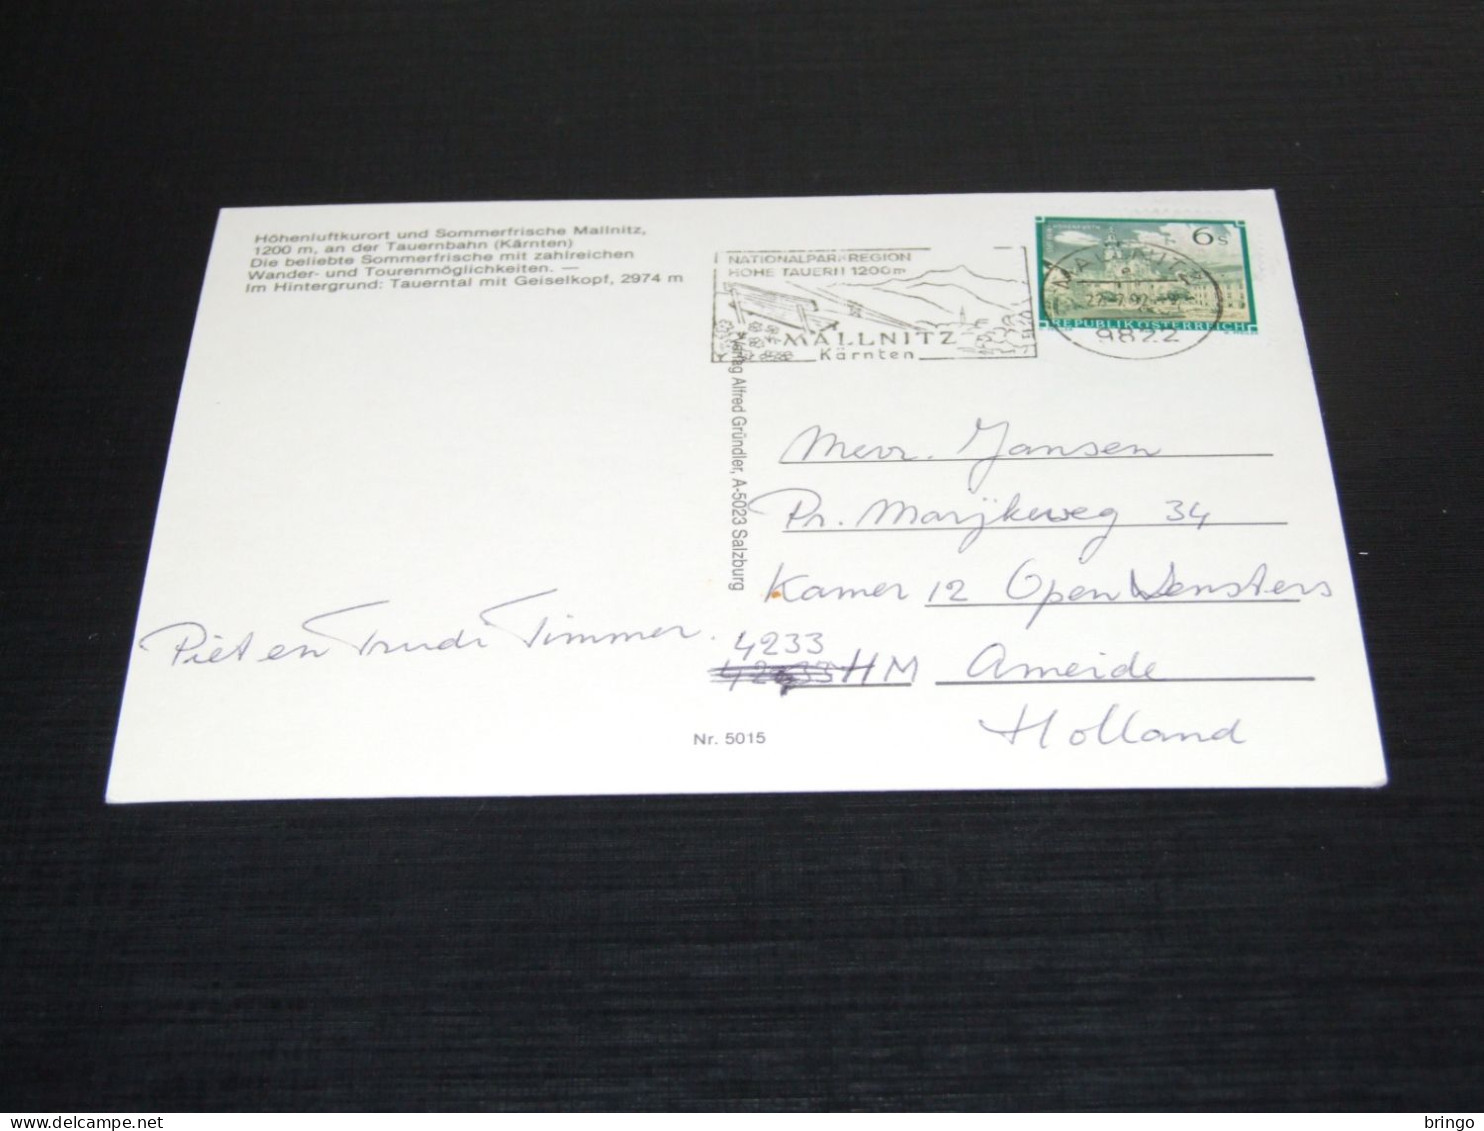 Höhenluftkurort und Sommerfrische Mallnitz,
1200 m, an der Tauernbahn (Kärnten)
Die beliebte Sommerfrische mit zahlreichen
Wander- und Tourenmöglichkeiten. —
Im Hintergrund: Tauerntal mit Geiselkopf, 2974 m
NATIONALPARKREGION
HOHE TAUERN 1200m
MALLNITZ
Kärnten
6s
MALLNITZ
9822
REPUBLIK ÖSTERREICH
Verlag Alfred Gründler, A-5023 Salzburg
Mevr. Jansen
Pr. Marijkeweg 34
Kamer 12 Open Vensters
4233
HM Ameide
Holland
Piet en Trudi Timmer.
Nr. 5015
delcampe.net
bringo